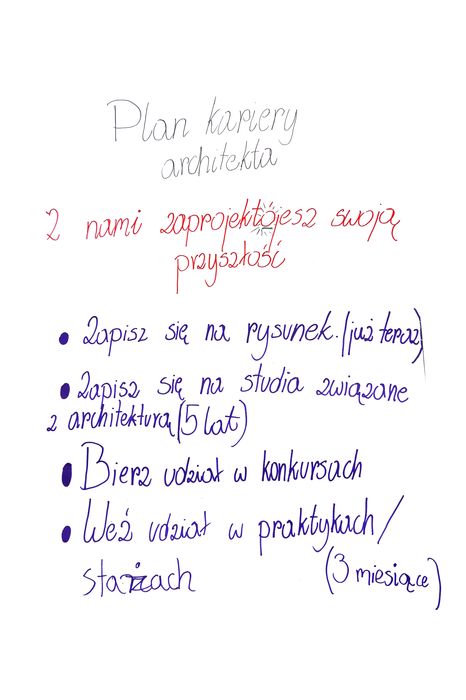 Plan kariery
architekta
Z nami zaprojektójesz swoją
przyszłość
• Zapisz się na rysunek. (już teraz)
• Zapisz się na studia związane
z architekturą (5 lat)
• Bierz udział w konkursach
• Weź udział w praktykach/
stażach (3 miesiące)